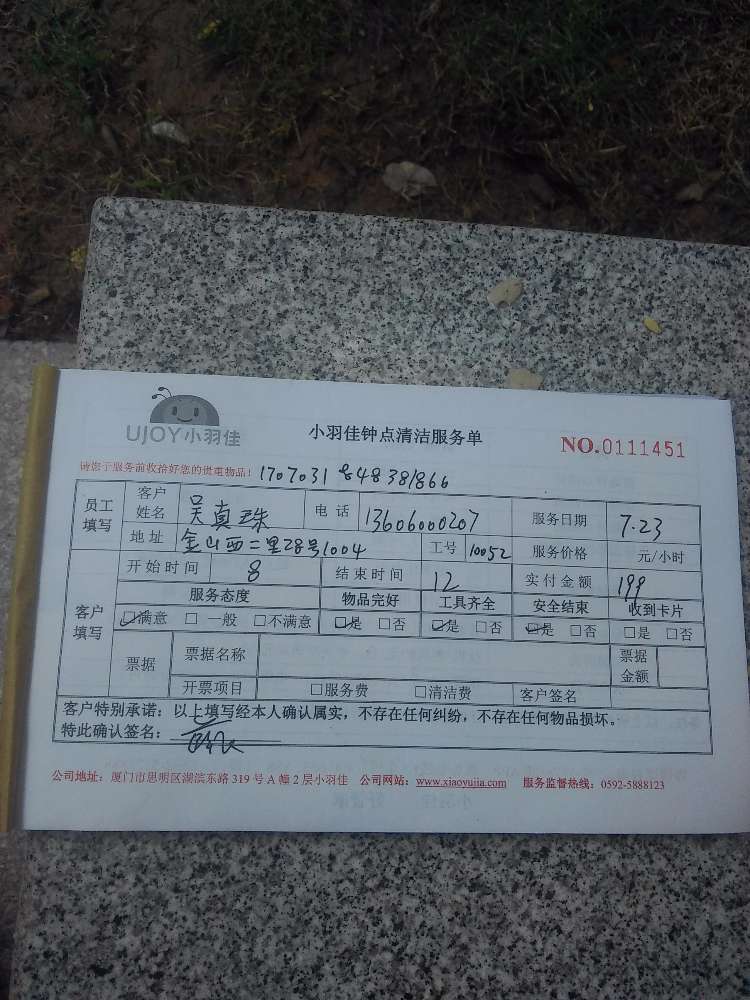 UJOY小羽佳
小羽佳钟点清洁服务单
NO.0111451
请您于服务前收拾好您的贵重物品!
员工填写 客户姓名 吴真珠 电话 13606000207 服务日期 7.23
地址 金山西二里28号1004 工号 10052 服务价格 元/小时
客户填写 开始时间 8 结束时间 12 实付金额 199
服务态度 物品完好 工具齐全 安全结束 收到卡片
☑满意 □一般 □不满意 ☑是 □否 ☑是 □否 ☑是 □否 □是 □否
票据 票据名称 票据金额
开票项目 □服务费 □清洁费 客户签名
客户特别承诺：以上填写经本人确认属实，不存在任何纠纷，不存在任何物品损坏。
特此确认签名：
公司地址：厦门市思明区湖滨东路 319 号 A 幢 2 层小羽佳 公司网站：www.xiaoyujia.com 服务监督热线：0592-5888123